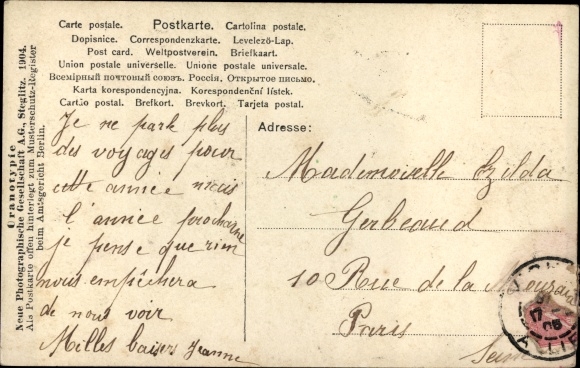 Carte postale. Postkarte. Cartolina postale.
Dopisnice. Correspondenzkarte. Levelező-Lap.
Post card. Weltpostverein. Briefkaart.
Union postale universelle. Unione postale universale.
Всемірный почтовый союзъ. Россія. Открытое письмо.
Karta korespondencyjna. Korespondenční lístek.
Cartão postal. Brefkort. Brevkort. Tarjeta postal.
Uranotypie
Neue Photographische Gesellschaft A.G., Steglitz. 1904.
Als Postkarte offen hinterlegt zum Musterschutz-Register
beim Amtsgericht Berlin.
Je ne parle plus
des voyages pour
cette année mais
l'année prochaine
je pense que rien
nous empêchera
de nous voir
Milles baisers Jeanne
Adresse:
Mademoiselle Ezilda
Gerbeaud
10 Rue de la
Paris
Seine
17